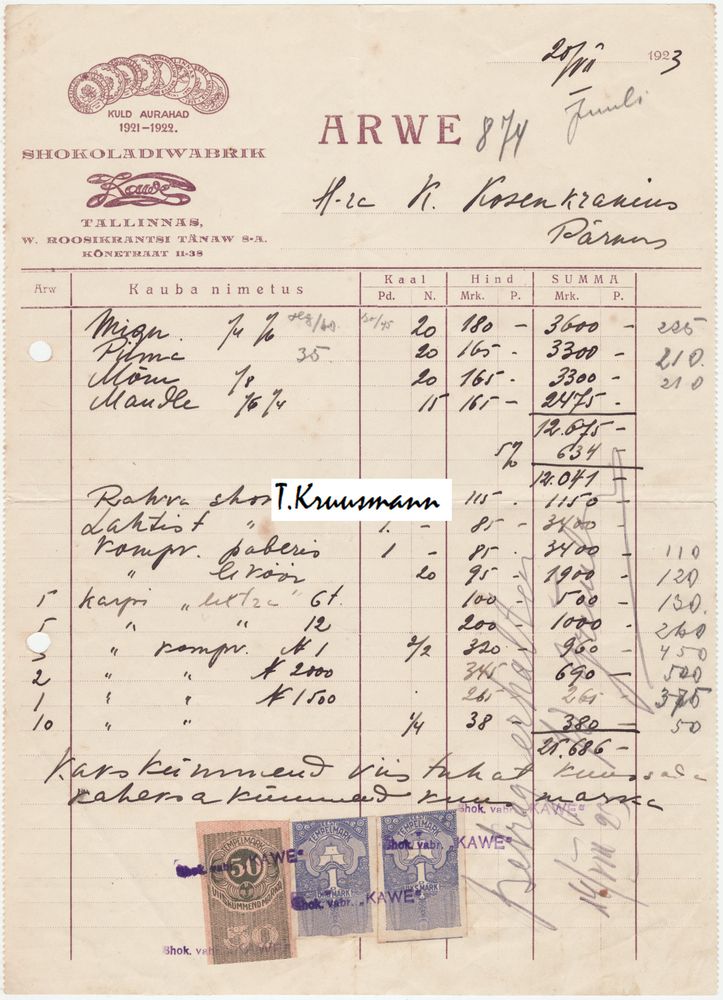 20/VII 1923
KULD AURAHAD
1921-1922.
SHOKOLADIWABRIK
Kawe
TALLINNAS,
W. ROOSIKRANTSI TÄNAW 8-A.
KÕNETRAAT 11-38
ARWE 874
Juuli
H-ra K. Rosenkranius
Pärnus
Arw Kauba nimetus Kaal Hind SUMMA
Pd. N. Mrk. P. Mrk. P.
Mign. 1/4 20 180 - 3600 - 225
35 20 165 . 3300 - 210.
1/8 20 165 . 3300 - 210
Mandle 1/4 15 165 - 2475 -
12.675 -
5% 634
12.041 -
Rahva T.Kruusmann 115 . 1150 -
Lahtist " 1. - 85 - 3400 -
kompv. paberis 1 - 85 . 3400 - 110
" 20 95 - 1900 - 120
5 karpi "extra" 6t. 100 - 500 - 130.
5 " " 12 200 1000 - 260
3 " kompv. N 1 3/2 320 - 960 - 450
2 " " N 2000 345 690 - 500
1 " " N 1500 265 265 375
10 " " 1/4 38 380 - 50
25.686 -
Kakskümmend viis tuhat kuussada
kaheksakümmend kuus marka
Shok. vabr. „KAWE"
Betrag erhalten
14/VIII 23
TEMPELMARK
50
VIISKÜMMEND MARKA
50
EESTI
TEMPELMARK
1
ÜKS MARK
EESTI
TEMPELMARK
1
ÜKS MARK
Shok. vabr. „KAWE"
Shok. vabr. „KAWE"
Shok. vabr. „KAWE"
Shok. vabr. „KAWE"